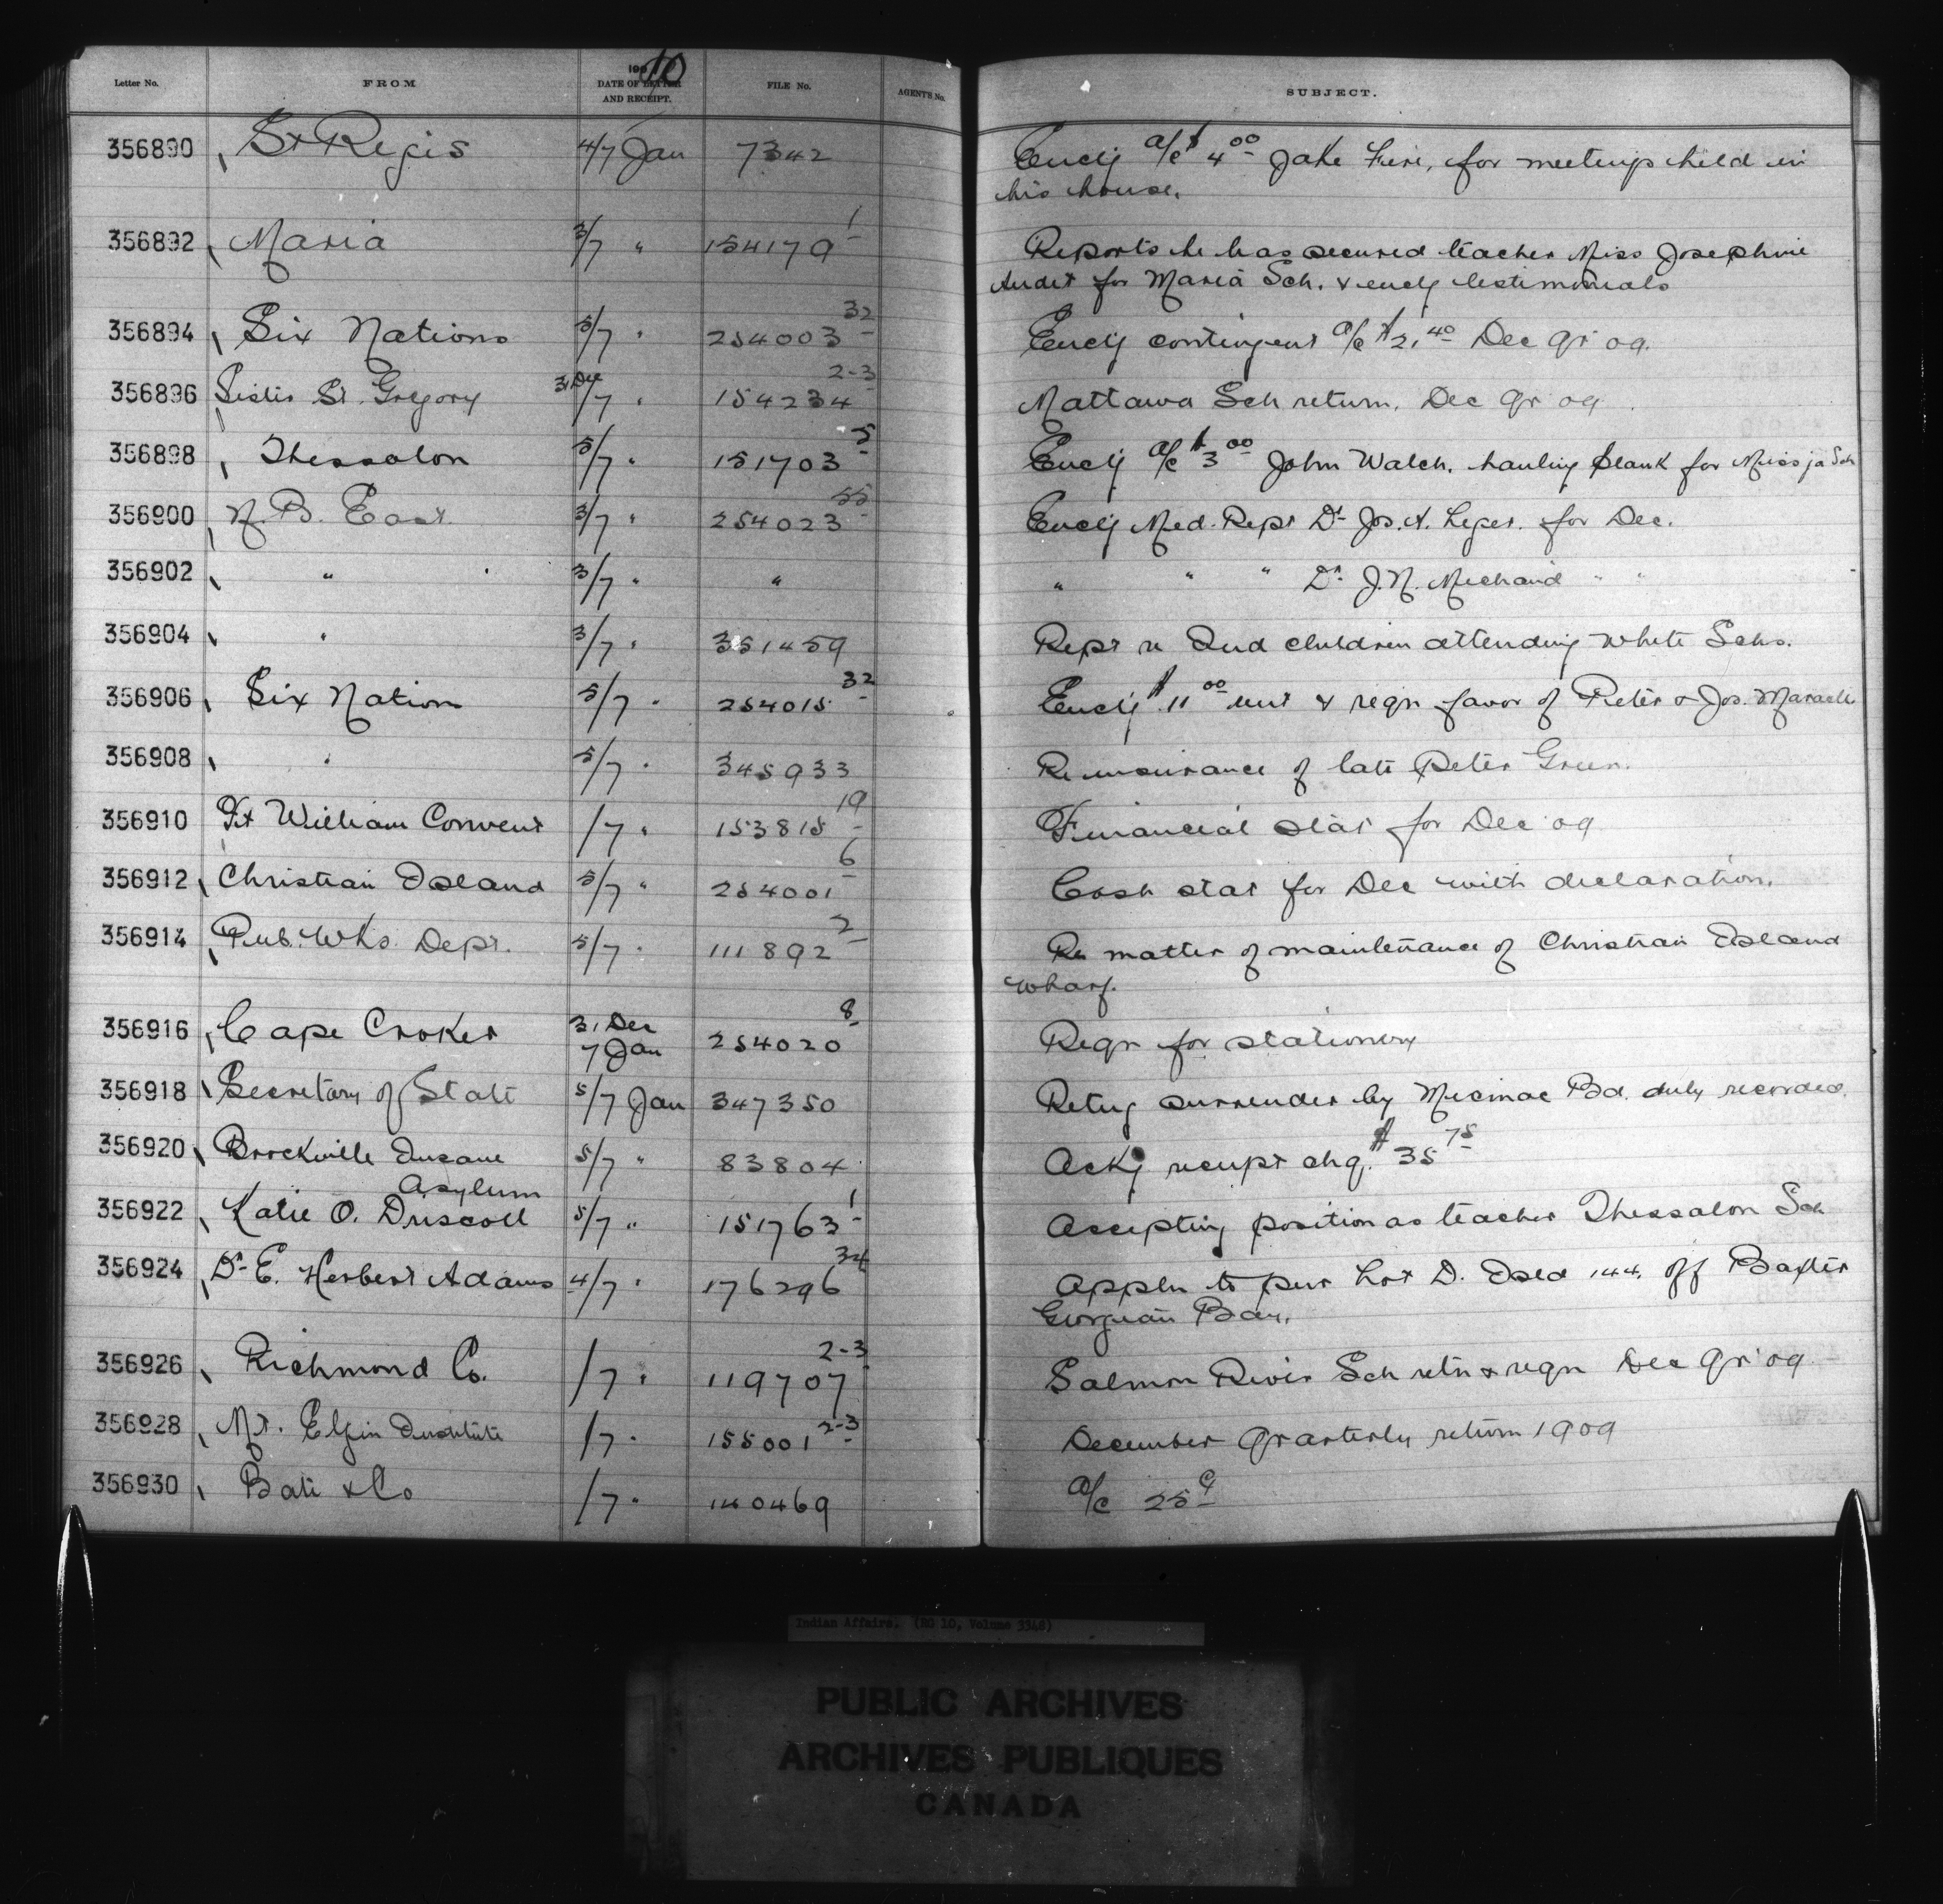 Letter No. FROM 190 10 DATE OF LETTER AND RECEIPT. FILE No. AGENT'S No. SUBJECT.
356890 St Regis 4/7 Jan 7342 Encl'g a/c $4.00 Jake Fire, for meetings held in
his house.
356892 Maria 3/7 " 154179-1 Reports he has secured teacher Miss Josephine
Audet for Maria Sch. & encl'g testimonials
356894 Six Nations 5/7 " 254003-32 Encl'g contingent a/c $2.40 Dec Qr 09.
356896 Sister St. Gregory 31 Dec/7 " 154234 2-3 Mattawa Sch return, Dec Qr 09
356898 Thessalon 5/7 " 151703-5 Encl'g a/c $3.00 John Walch, hauling plank for Missi'ja Sch
356900 N.B. East 3/7 " 254023-55 Encl'g Med. Rept Dr Jos. A. Leger. for Dec.
356902 " " 3/7 " " " " " Dr J.N. Michaud " "
356904 " 3/7 " 351459 Rept re Ind children attending white Schs.
356906 Six Nation 5/7 " 254015-32 Encl'g $11.00 & reqn favor of Peter & Jos. Maracle
356908 " 5/7 " 345933 Re insurance of late Peter Green.
356910 Ft William Convent /7 " 153815-19 Financial stat for Dec 09
356912 Christian Island 5/7 " 254001-6 Cash stat for Dec with declaration.
356914 Pub. Wks. Dept. 5/7 " 111892-2 Re matter of maintenance of Christian Island
Wharf.
356916 Cape Croker 31 Dec 7 Jan 254020-8 Reqn for stationery
356918 Secretary of State 5/7 Jan 347350 Retug surrender by Micmac Bd. duly recorded.
356920 Brockville Insane Asylum 5/7 " 83804 Ackg receipt chq. $35.75
356922 Katie O. Driscoll 5/7 " 151763-1 Accepting position as teacher Thessalon Sch
356924 Dr E. Herbert Adams 4/7 " 176296-34 Appln to pur Lot D. Isld 144. off Baxter
Georgian Bay.
356926 Richmond Co. /7 " 119707 2-3 Salmon River Sch retn & reqn Dec Qr 09
356928 Mt. Elgin Institute /7 " 155001 2-3 December Quarterly return 1909
356930 Bate & Co /7 " 140469 a/c 25c
Indian Affairs. (RG 10, Volume 3348)
PUBLIC ARCHIVES
ARCHIVES PUBLIQUES
CANADA